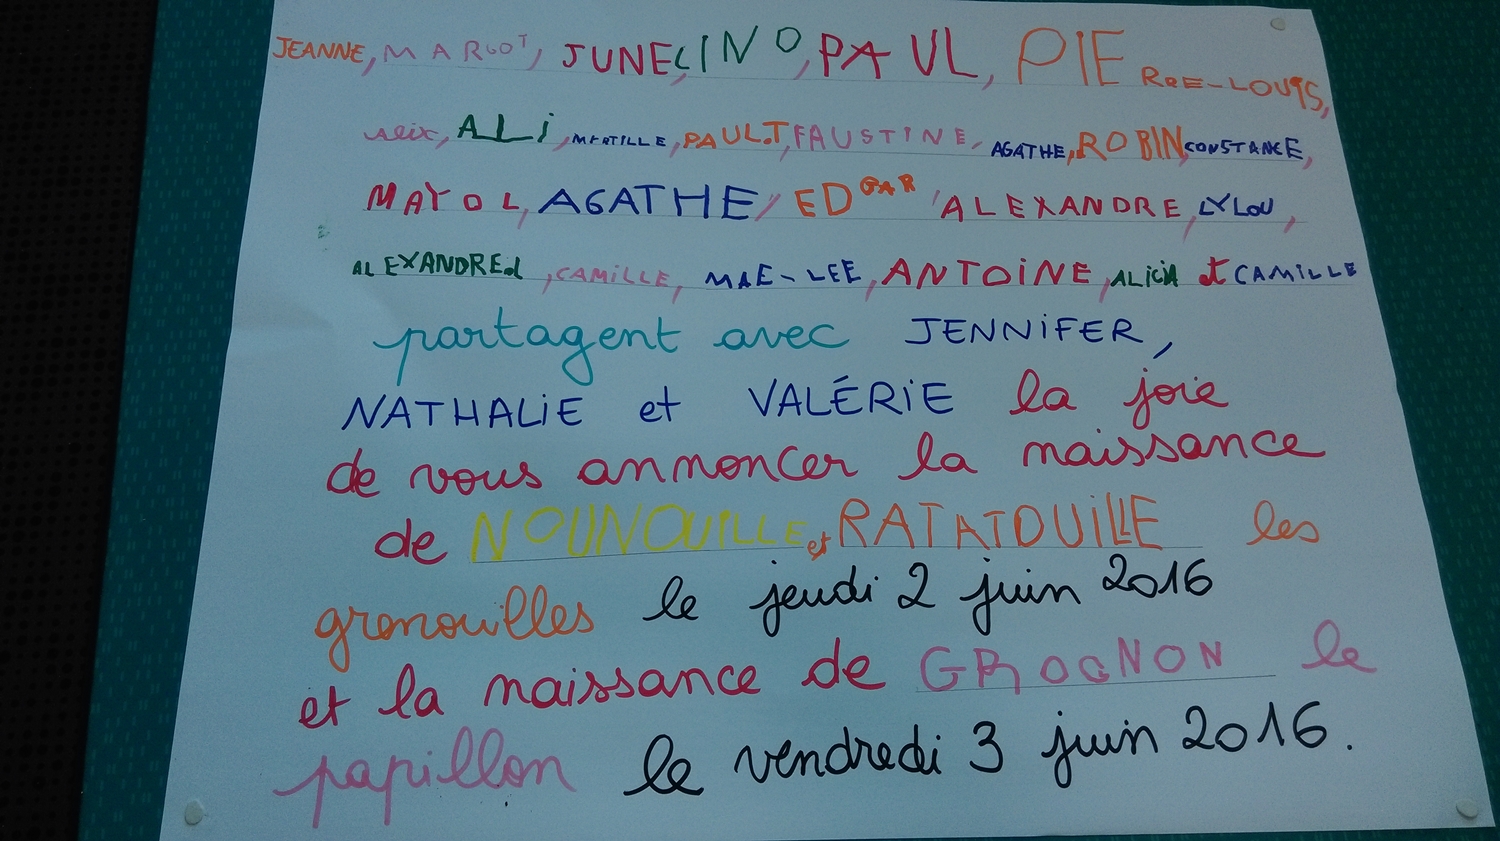 JEANNE, MARGOT, JUNE, LINO, PAUL, PIERRE-LOUIS,
ALI, MYRTILLE, PAUL.T, FAUSTINE, AGATHE, ROBIN, CONSTANCE,
MAYOL, AGATHE, EDGAR, ALEXANDRE, LYLOU,
ALEXANDRE.L, CAMILLE, MAE-LEE, ANTOINE, ALICIA et CAMILLE
partagent avec JENNIFER,
NATHALIE et VALÉRIE la joie
de vous annoncer la naissance
de NOUNOUILLE et RATATOUILLE les
grenouilles le jeudi 2 juin 2016
et la naissance de GROGNON le
papillon le vendredi 3 juin 2016.